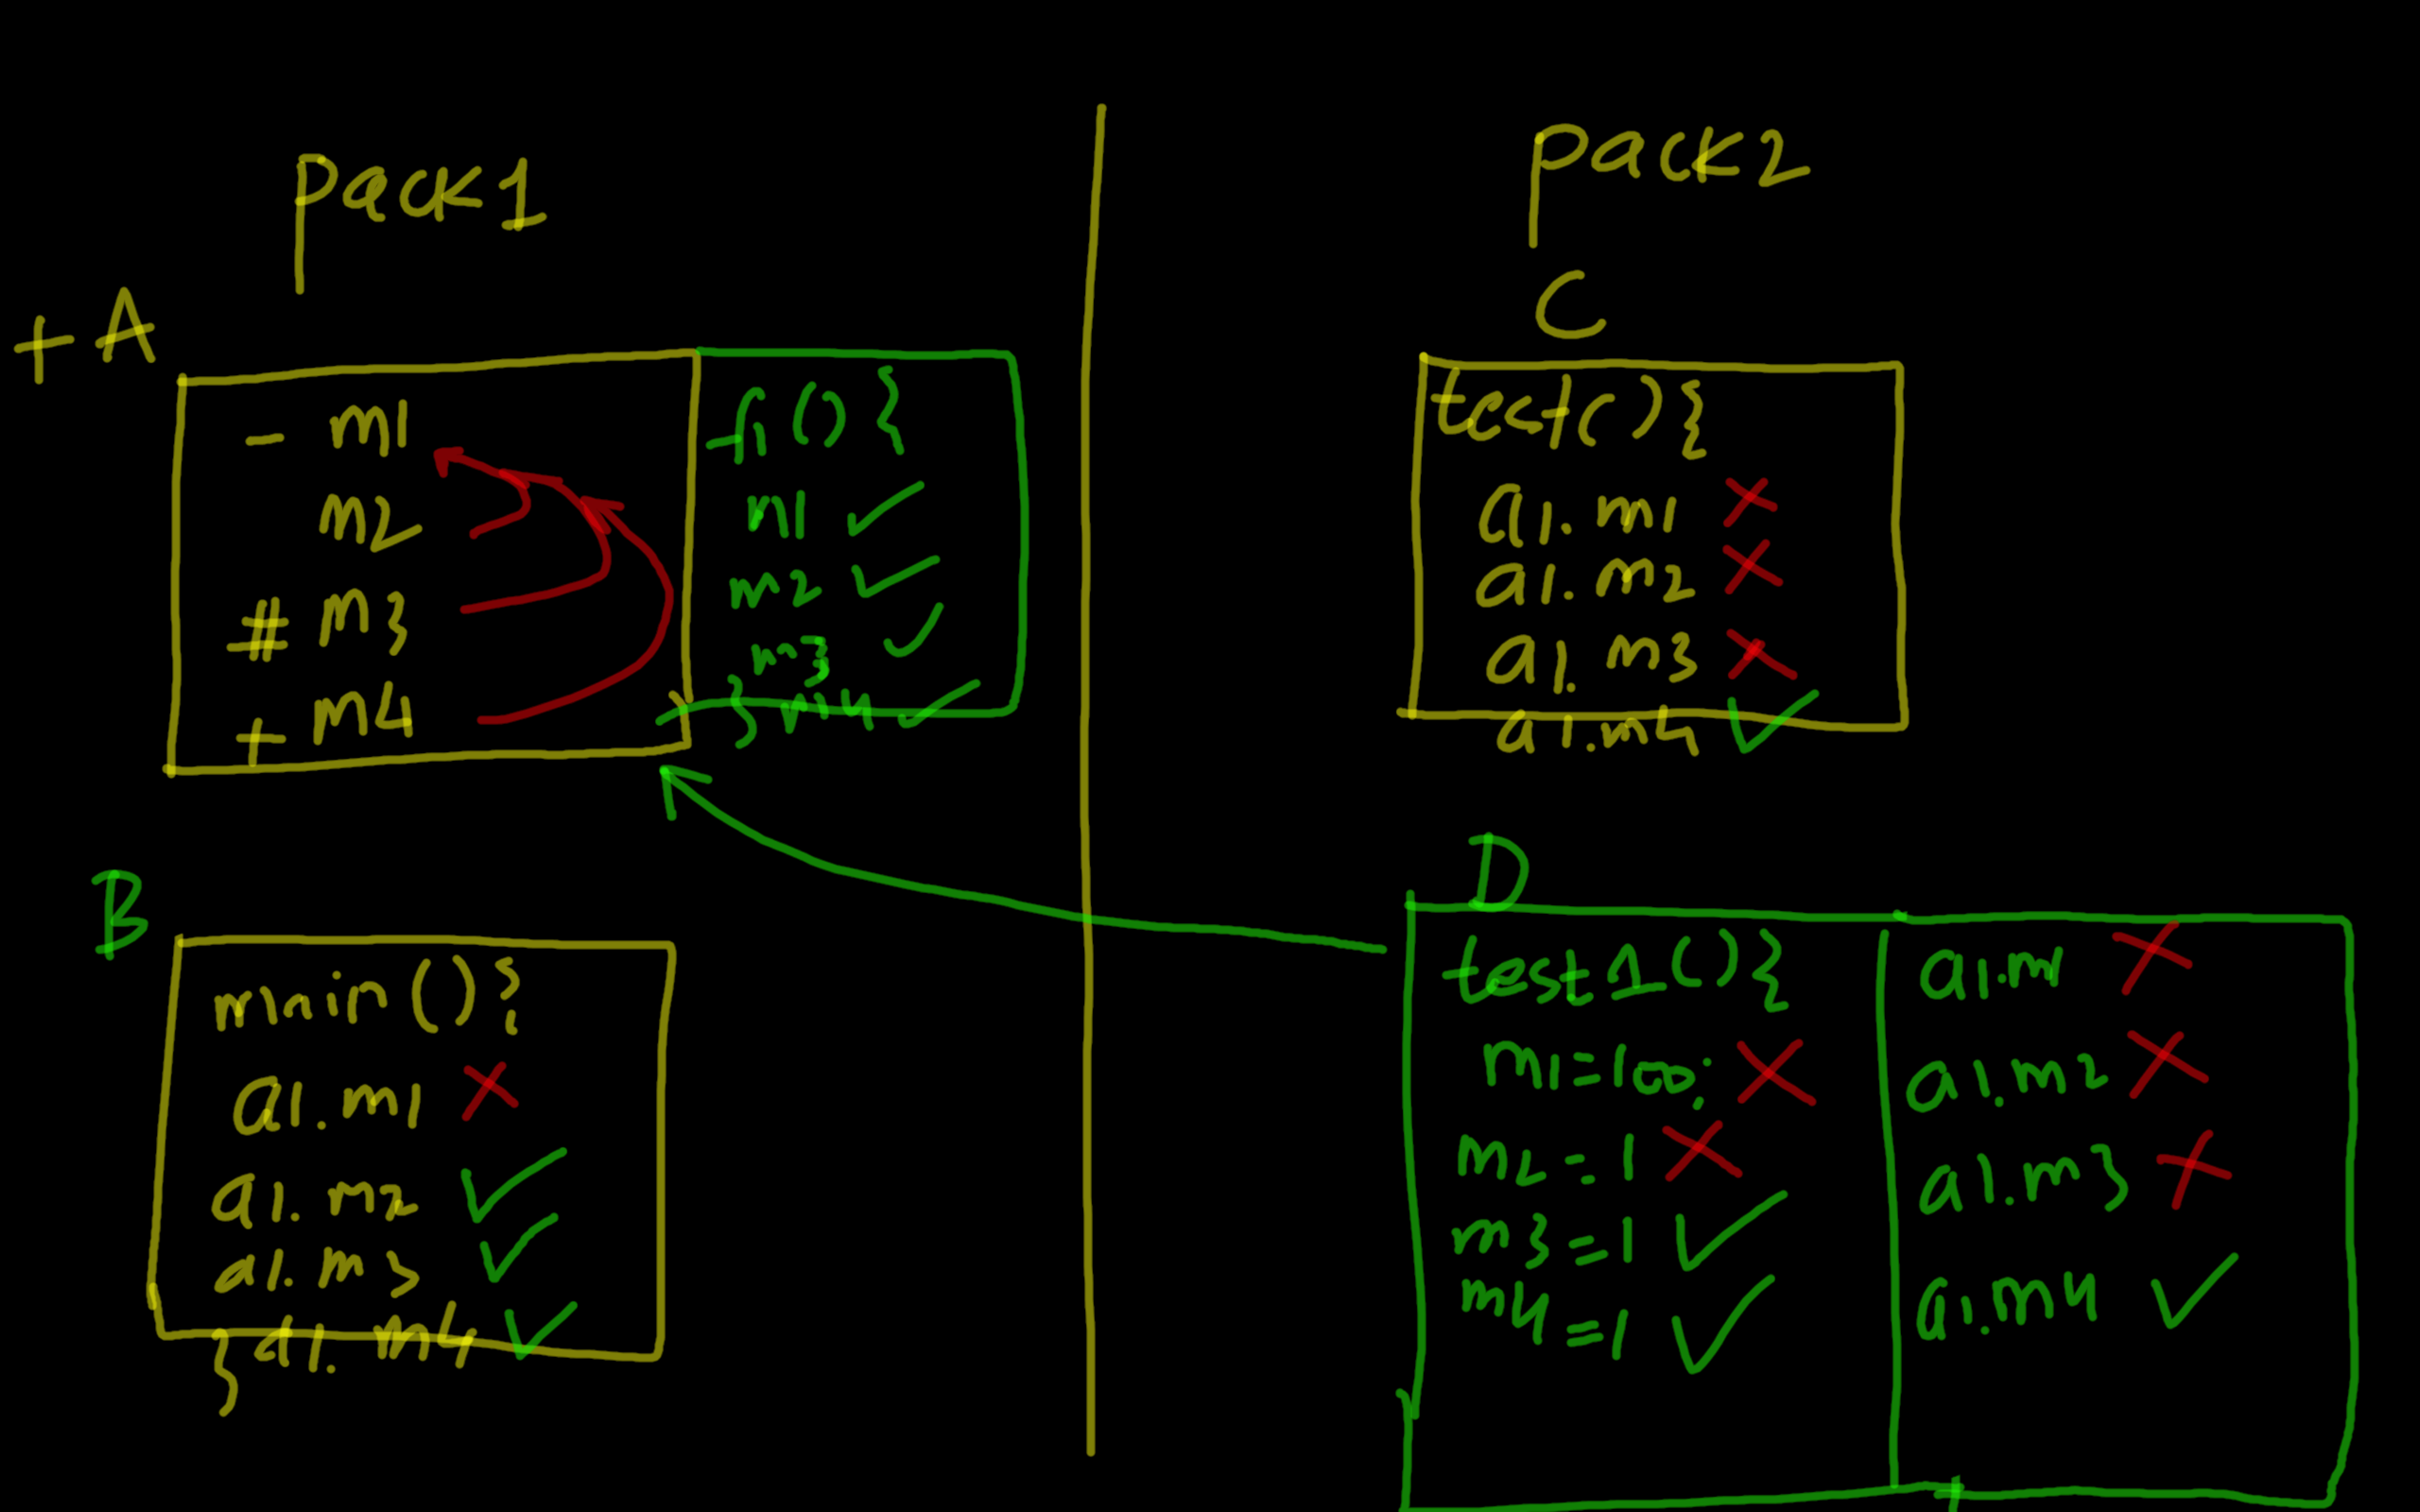 pack1
+ A
- m1
m2
# m3
+ m4
f1() {
m1
m2
m3
} m4
B
main() {
a1.m1
a1.m2
a1.m3
} a1.m4
pack2
C
test() {
a1.m1
a1.m2
a1.m3
a1.m4
D
test1() {
m1=100;
m2=1
m3=1
m4=1
a1.m1
a1.m2
a1.m3
a1.m4